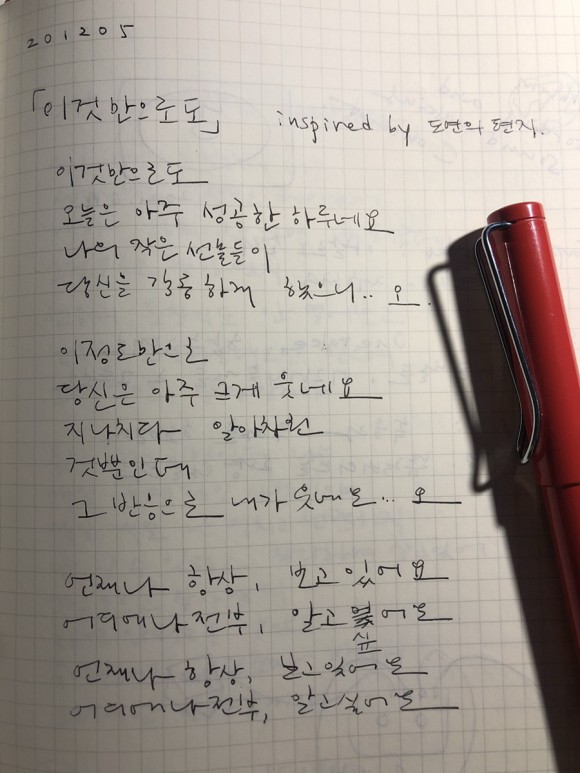 201205
「이것만으로도」 inspired by 도연의 편지.
이것만으로도
오늘은 아주 성공한 하루네요
나의 작은 선물들이
당신을 갸륵하게 했으니.. 오.
이정도만으로
당신은 아주 크게 웃네요
지나치다 알아차린
것뿐인데
그 반응으로 내가 웃네요... 오
언제나 항상, 보고 있어요
어디에나 전부, 알고 어요
싶
언제나 항상, 보고있어요
어디에나 전부, 알고싶어요